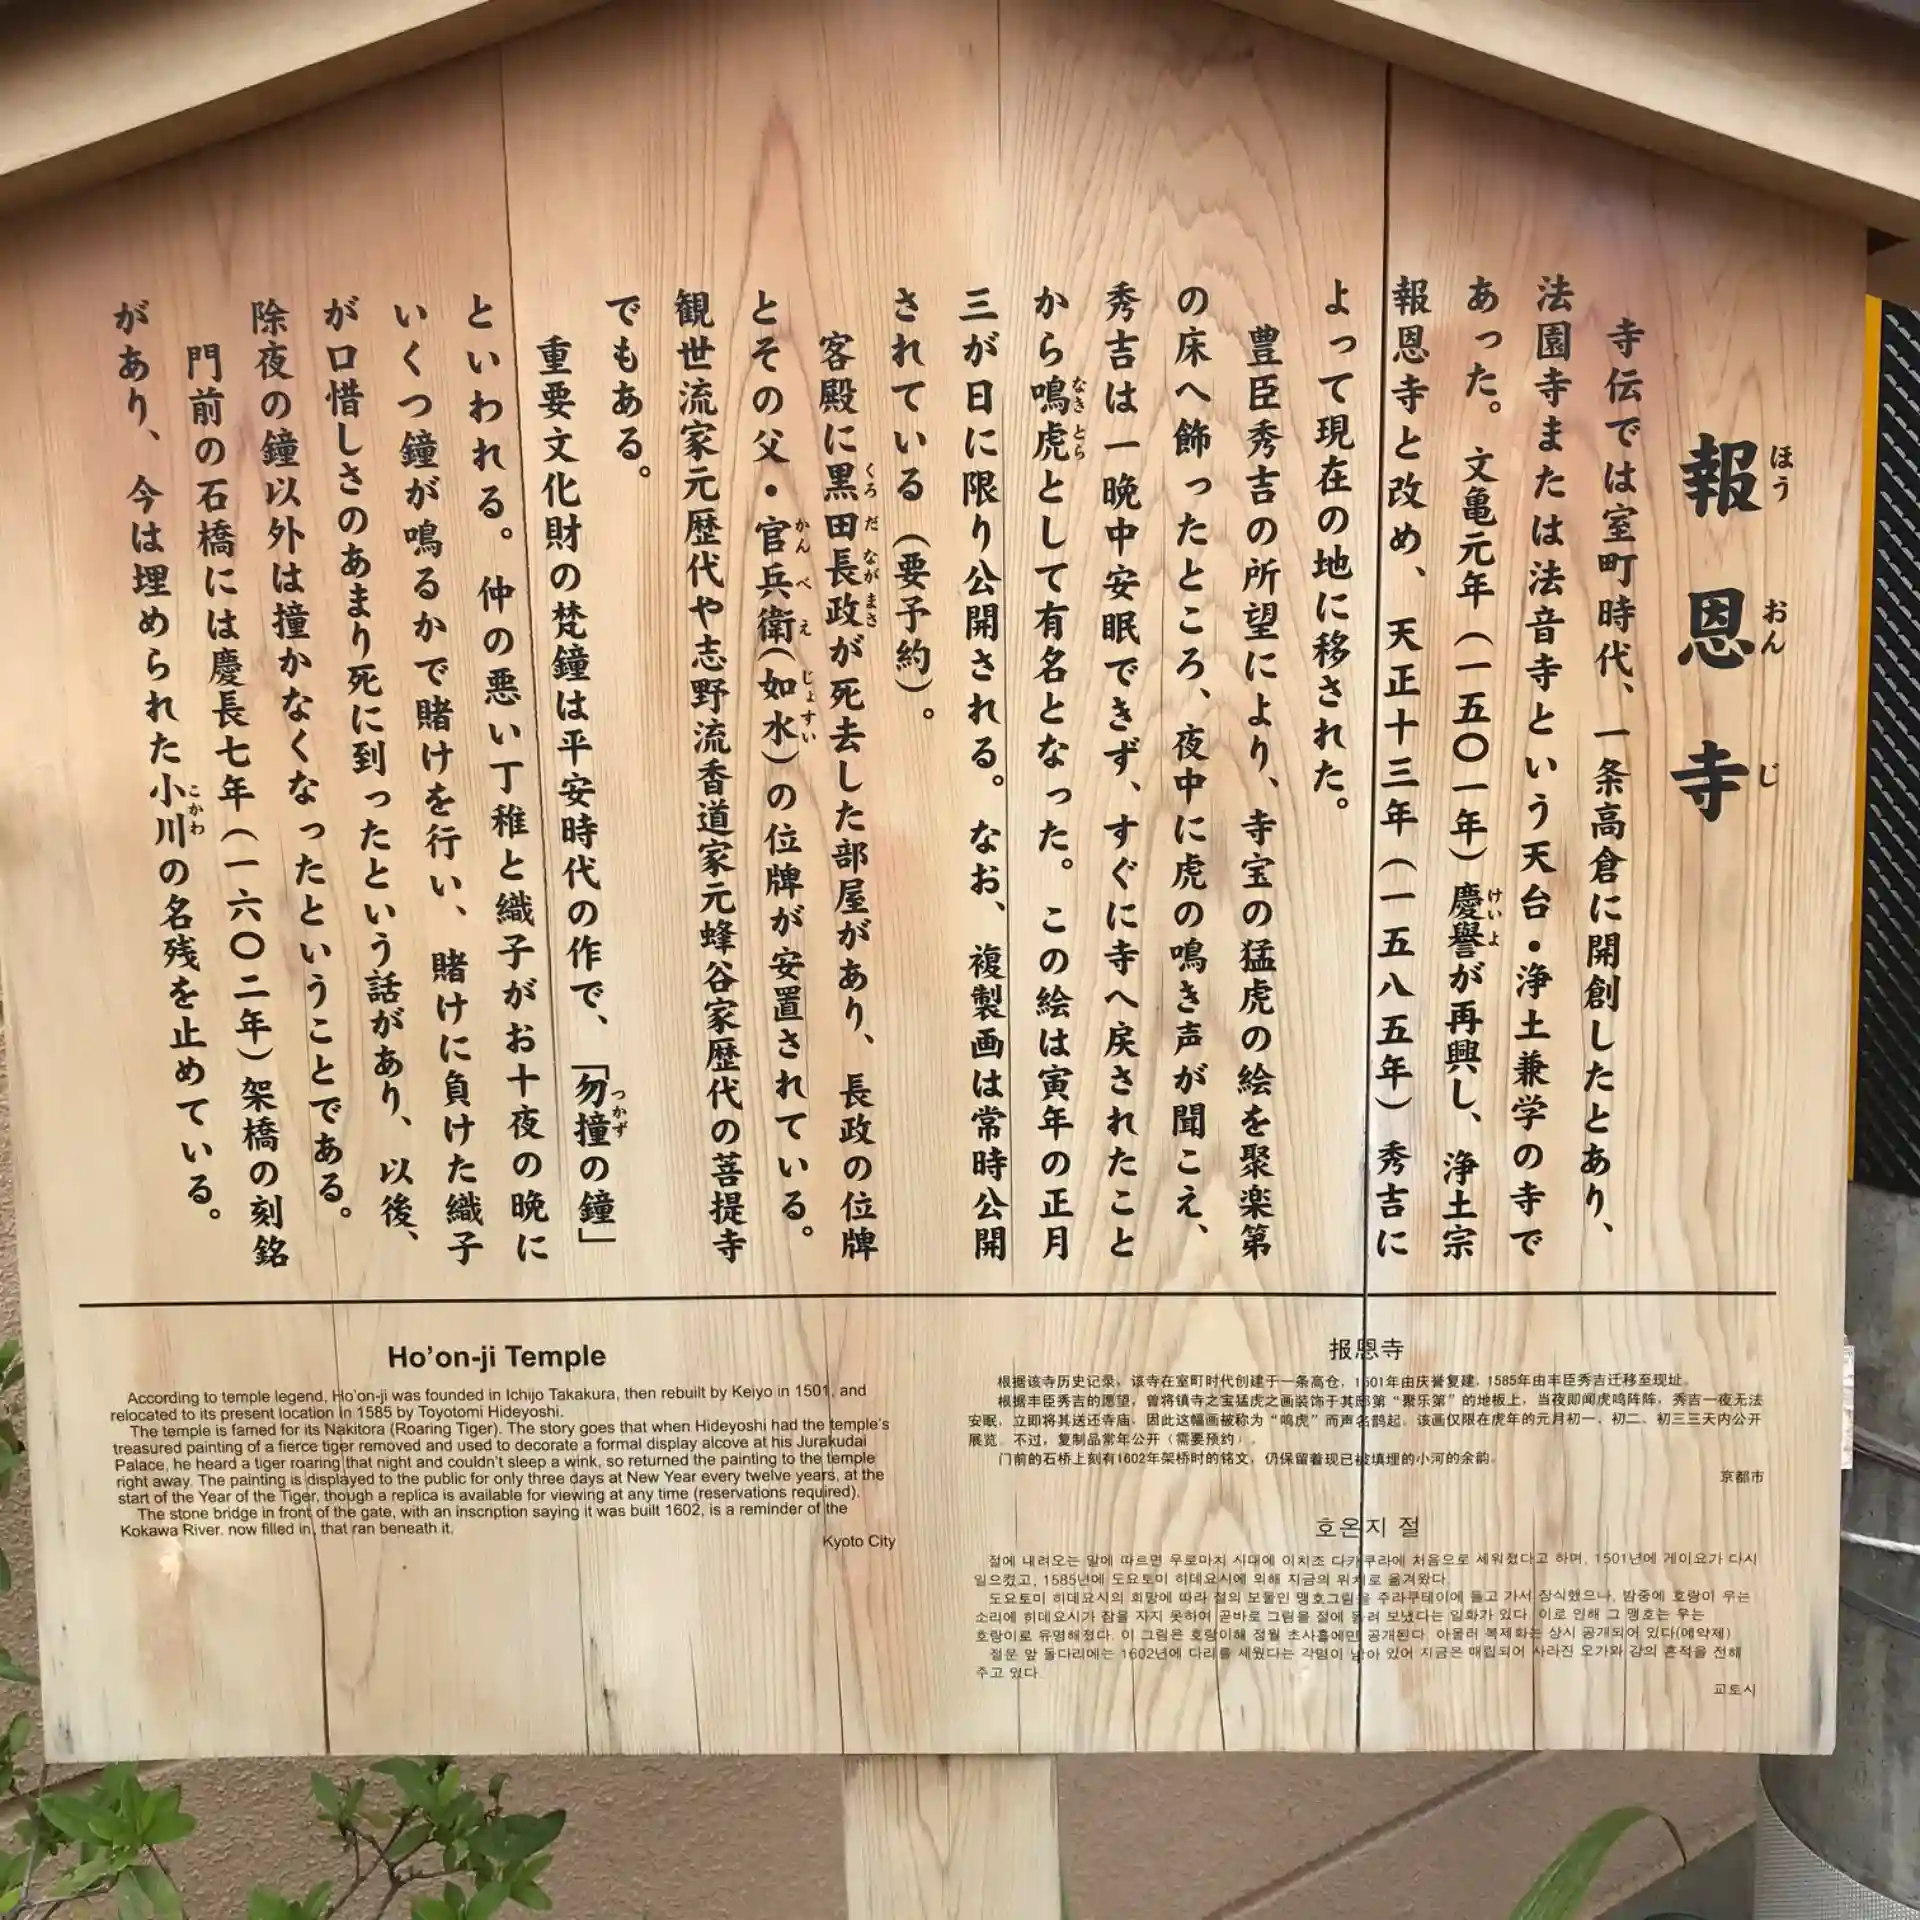 報恩寺
ほう おん じ
寺伝では室町時代、一条高倉に開創したとあり、
法園寺または法音寺という天台・浄土兼学の寺で
あった。文亀元年（一五〇一年）慶譽が再興し、浄土宗
けいよ
報恩寺と改め、天正十三年（一五八五年）秀吉に
よって現在の地に移された。
豊臣秀吉の所望により、寺宝の猛虎の絵を聚楽第
の床へ飾ったところ、夜中に虎の鳴き声が聞こえ、
秀吉は一晩中安眠できず、すぐに寺へ戻されたこと
から鳴虎として有名となった。この絵は寅年の正月
なき とら
三が日に限り公開される。なお、複製画は常時公開
されている（要予約）。
客殿に黒田長政が死去した部屋があり、長政の位牌
くろ だ なが まさ
とその父・官兵衛（如水）の位牌が安置されている。
かん べ え じょすい
観世流家元歴代や志野流香道家元蜂谷家歴代の菩提寺
でもある。
重要文化財の梵鐘は平安時代の作で、「勿撞の鐘」
つかず
といわれる。仲の悪い丁稚と織子がお十夜の晩に
いくつ鐘が鳴るかで賭けを行い、賭けに負けた織子
が口惜しさのあまり死に到ったという話があり、以後、
除夜の鐘以外は撞かなくなったということである。
門前の石橋には慶長七年（一六〇二年）架橋の刻銘
があり、今は埋められた小川の名残を止めている。
こかわ
Ho'on-ji Temple
According to temple legend, Ho'on-ji was founded in Ichijo Takakura, then rebuilt by Keiyo in 1501, and
relocated to its present location in 1585 by Toyotomi Hideyoshi.
The temple is famed for its Nakitora (Roaring Tiger). The story goes that when Hideyoshi had the temple's
treasured painting of a fierce tiger removed and used to decorate a formal display alcove at his Jurakudai
Palace, he heard a tiger roaring that night and couldn't sleep a wink, so returned the painting to the temple
right away. The painting is displayed to the public for only three days at New Year every twelve years, at the
start of the Year of the Tiger, though a replica is available for viewing at any time (reservations required).
The stone bridge in front of the gate, with an inscription saying it was built 1602, is a reminder of the
Kokawa River, now filled in, that ran beneath it.
Kyoto City
报恩寺
根据该寺历史记录，该寺在室町时代创建于一条高仓，1501年由庆誉复建，1585年由丰臣秀吉迁移至现址。
根据丰臣秀吉的愿望，曾将镇寺之宝猛虎之画装饰于其邸第“聚乐第”的地板上，当夜即闻虎鸣阵阵，秀吉一夜无法
安眠，立即将其送还寺庙，因此这幅画被称为“鸣虎”而声名鹊起，该画仅限在虎年的元月初一、初二、初三三天内公开
展览。不过，复制品常年公开（需要预约）。
门前的石桥上刻有1602年架桥时的铭文，仍保留着现已被填埋的小河的余韵。
京都市
호온지 절
절에 내려오는 말에 따르면 무로마치 시대에 이치조 다카쿠라에 처음으로 세워졌다고 하며, 1501년에 게이요가 다시
일으켰고, 1585년에 도요토미 히데요시에 의해 지금의 위치로 옮겨왔다.
도요토미 히데요시의 희망에 따라 절의 보물인 맹호그림을 주라쿠테이에 들고 가서 장식했으나, 밤중에 호랑이 우는
소리에 히데요시가 잠을 자지 못하여 곧바로 그림을 절에 돌려 보냈다는 일화가 있다. 이로 인해 그 맹호는 우는
호랑이로 유명해졌다. 이 그림은 호랑이해 정월 초사흘에만 공개된다. 아울러 복제화는 상시 공개되어 있다(예약제)
절문 앞 돌다리에는 1602년에 다리를 세웠다는 각명이 남아 있어 지금은 매립되어 사라진 오가와 강의 흔적을 전해
주고 있다.
교토시